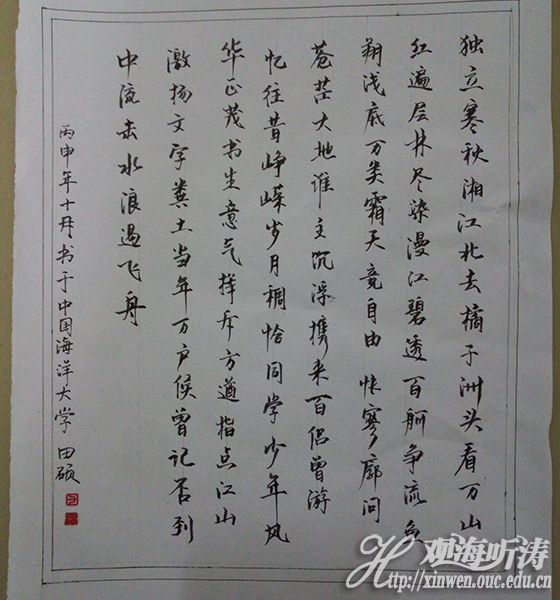 独立寒秋湘江北去橘子洲头看万山
红遍层林尽染漫江碧透百舸争流鱼
翔浅底万类霜天竞自由 怅寥廓问
苍茫大地谁主沉浮携来百侣曾游
忆往昔峥嵘岁月稠恰同学少年风
华正茂书生意气挥斥方遒指点江山
激扬文字粪土当年万户侯曾记否到
中流击水浪遏飞舟
丙申年十月书于中国海洋大学 田硕
观海听涛
http://xinwen.ouc.edu.cn